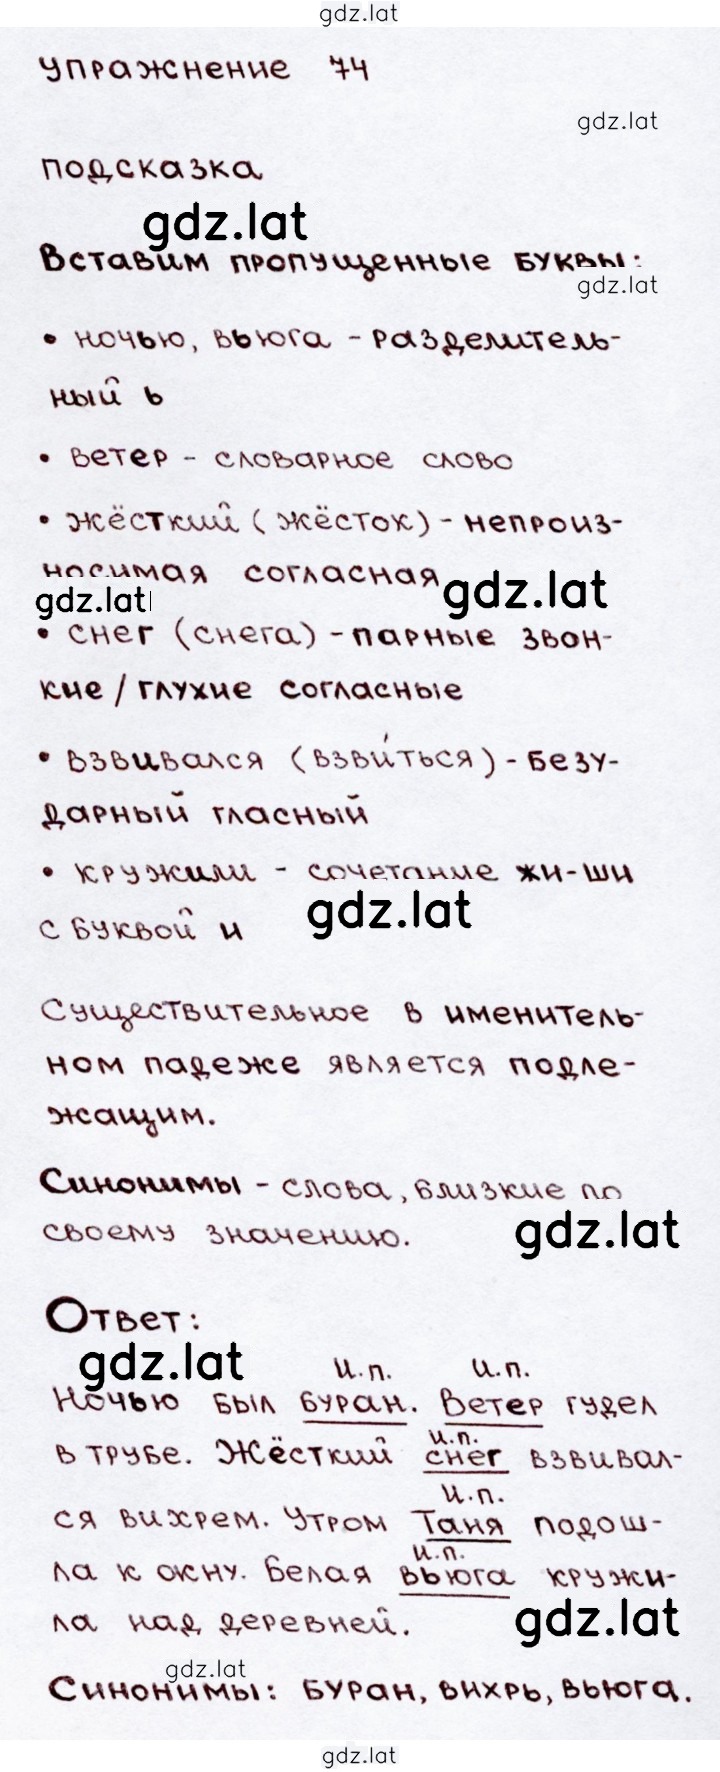 gdz.lat
упражнение 74
gdz.lat
подсказка
gdz.lat
Вставим пропущенные буквы:
gdz.lat
• ночью, вьюга - разделитель-
ный ь
• ветер - словарное слово
• жёсткий (жёсток) - непроиз-
носимая согласная
gdz.lat
gdz.lat
• снег (снега) - парные звон-
кие / глухие согласные
• взвивался (взви́ться) - безу-
дарный гласный
• кружили - сочетание жи-ши
с буквой и
gdz.lat
Существительное в именитель-
ном падеже является подле-
жащим.
Синонимы - слова, близкие по
своему значению.
gdz.lat
Ответ:
gdz.lat
и.п. и.п.
Ночью был буран. Ветер гудел
и.п.
в трубе. Жёсткий снег взвивал-
и.п.
ся вихрем. Утром Таня подош-
и.п.
ла к окну. Белая вьюга кружи-
ла над деревней.
gdz.lat
gdz.lat
Синонимы: буран, вихрь, вьюга.
gdz.lat